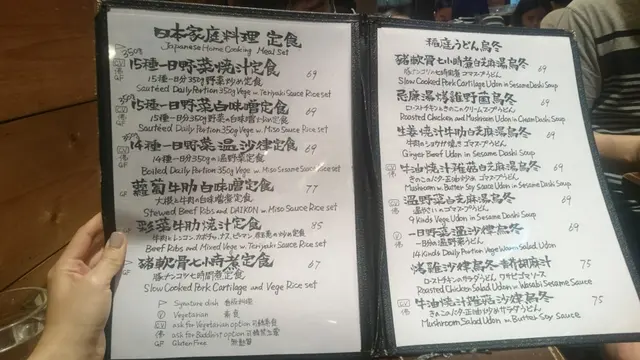 日本家庭料理 定食
Japanese Home Cooking Meal Set
350g
15種一日野菜燒汁定食 69
15種一日分350g野菜炒め定食
Sautéed Daily Portion 350g Vege w. Teriyaki Sauce Rice set
15種一日野菜白味噌定食 69
Sautéed Daily Portion 350g Vege w. Miso Sauce Rice Set
14種一日野菜溫沙律定食 69
14種一日分350gの温野菜定食
Boiled Daily Portion 350g Vege w. Miso Sesame Sauce Rice set
GF
蘿蔔牛肋白味噌定食 77
大根と牛肉の白味噌煮定食
Stewed Beef Ribs and DAIKON w. Miso Sauce Rice set
野菜牛肋燒汁定食 85
Beef Ribs and Mixed Vege w. Teriyaki Sauce Rice set
豬軟骨七小時煮定食 67
豚ナンコツ七時間煮定食
Slow Cooked Pork Cartilage and Vege Rice set
Signature dish 台柱料理
V Vegetarian 素食
ask for Vegetarian option
ask for Buddhist option
GF Gluten Free 無麩質
稲庭うどん烏冬
豬軟骨七小時煮白芝麻湯烏冬 69
Slow Cooked Pork Cartilage Udon in Sesame Dashi Soup
忌廉湯烤雞野菌烏冬 69
ローストチキンときのこのクリームスープうどん
Roasted Chicken and Mushroom Udon in Cream Dashi Soup
生姜燒汁牛肋白芝麻湯烏冬 69
牛肉のショウガ焼き ゴマスープうどん
Ginger Beef Udon in Sesame Dashi Soup
牛油燒汁雜菇白芝麻湯烏冬 69
きのこのバター正油炒め ゴマスープうどん
Mushroom w. Butter Soy Sauce Udon in Sesame Dashi Soup
溫野菜白芝麻湯烏冬 69
温やさいのゴマスープうどん
9 Kinds Vege Udon in Sesame Dashi Soup
一日野菜溫沙律烏冬 69
一日分の温野菜うどん
14 Kinds Daily Portion Vege Warm Salad Udon
烤雞沙律烏冬 75
ローストチキンのサラダうどん ワサビゴマソース
Roasted Chicken Salad Udon w. Wasabi Sesame Sauce
牛油燒汁雜菇沙律烏冬 75
きのこのバター正油炒めサラダうどん
Mushroom Salad Udon w. Butter Soy Sauce